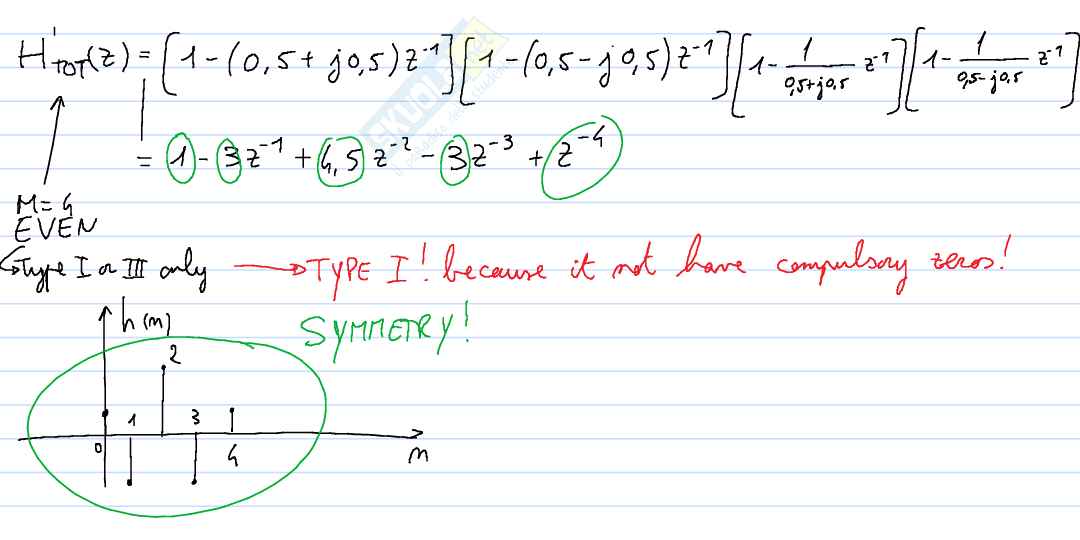 H'TOT(z) = [1-(0,5+j0,5)z^-1][1-(0,5-j0,5)z^-1][1- 1/(0,5+j0,5) z^-1][1- 1/(0,5-j0,5) z^-1]
= 1 - 3z^-1 + 4,5 z^-2 - 3z^-3 + z^-4
M=4
EVEN
Type I or III only → TYPE I! because it not have compulsory zeros!
h(n) SYMMETRY!
2
1 3
0 4 n